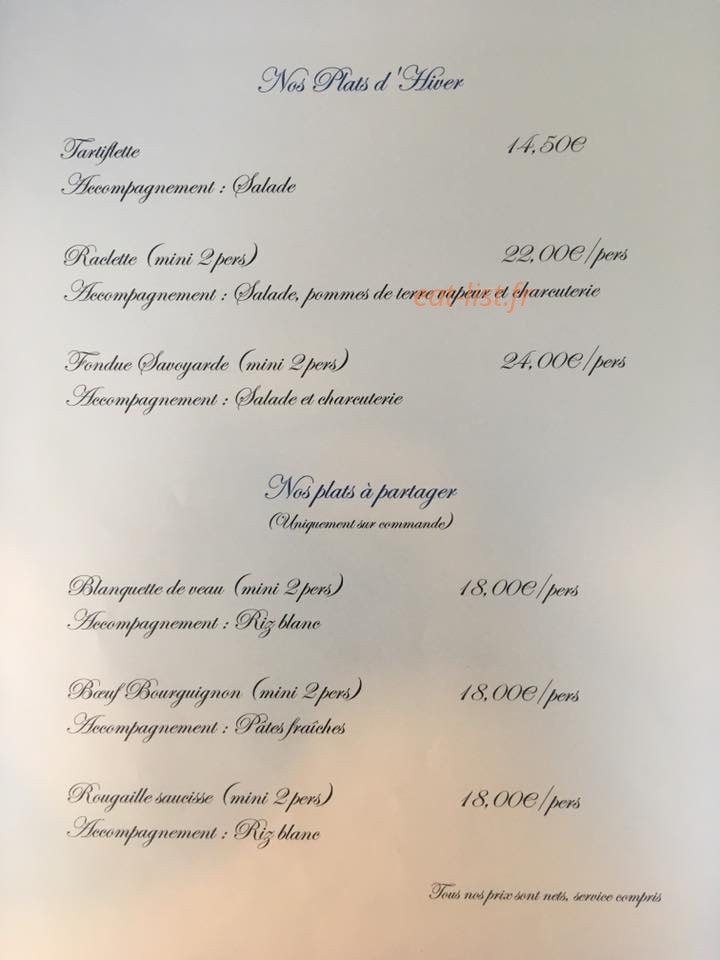 Nos Plats d'Hiver
Tartiflette 14,50€
Accompagnement : Salade
Raclette (mini 2pers) 22,00€/pers
Accompagnement : Salade, pommes de terre vapeur et charcuterie
eat-list.fr
Fondue Savoyarde (mini 2pers) 24,00€/pers
Accompagnement : Salade et charcuterie
Nos plats à partager
(Uniquement sur commande)
Blanquette de veau (mini 2pers) 18,00€/pers
Accompagnement : Riz blanc
Bœuf Bourguignon (mini 2pers) 18,00€/pers
Accompagnement : Pâtes fraîches
Rougaille saucisse (mini 2pers) 18,00€/pers
Accompagnement : Riz blanc
Tous nos prix sont nets, service compris